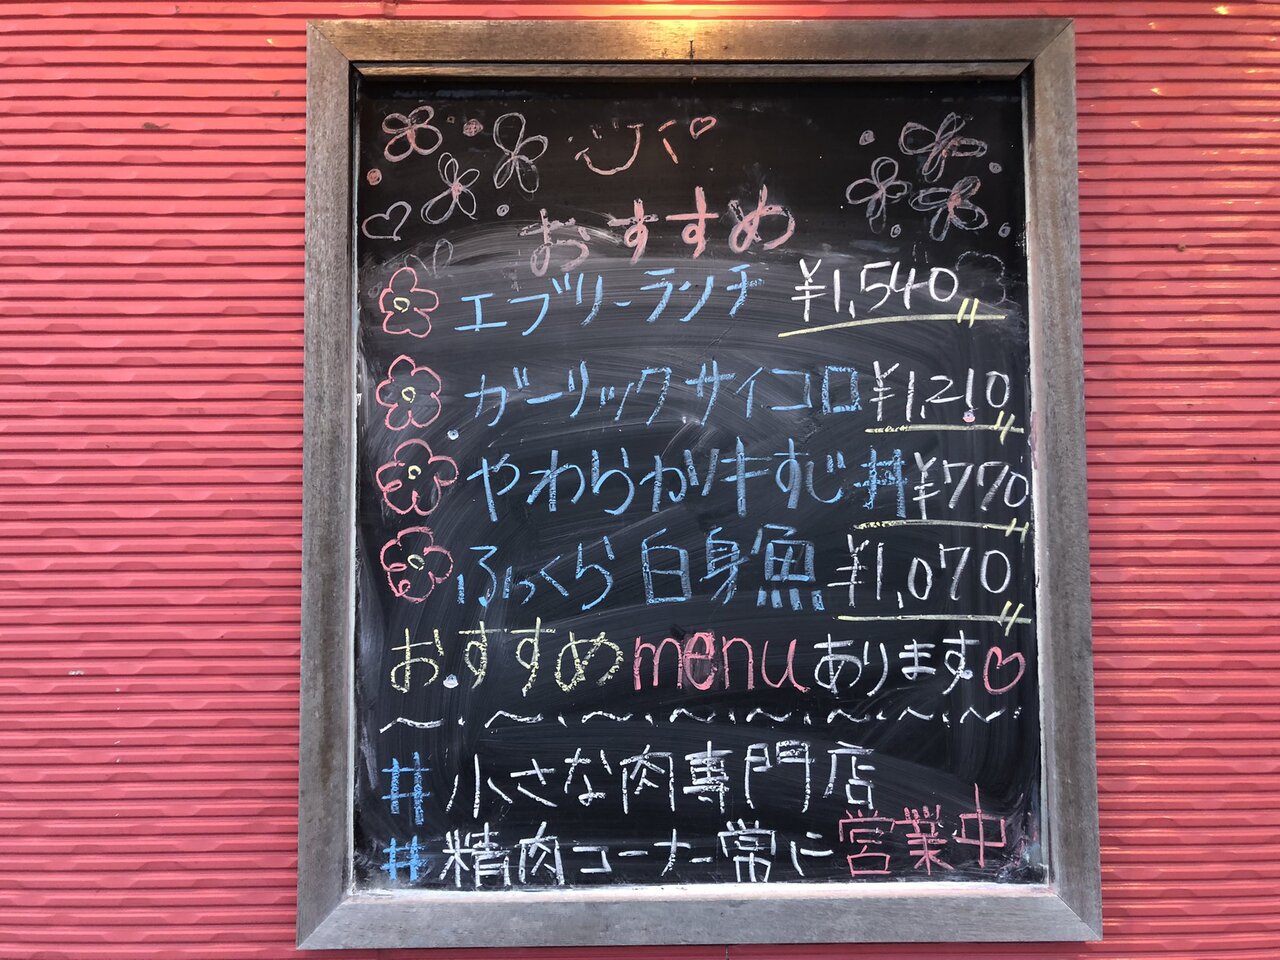 おすすめ
エブリーランチ ¥1,540
ガーリックサイコロ ¥1,210
やわらかり牛すじ丼 ¥770
ふっくら白身魚 ¥1,070
おすすめmenuあります♡
#小さな肉専門店
#精肉コーナー常に営業中